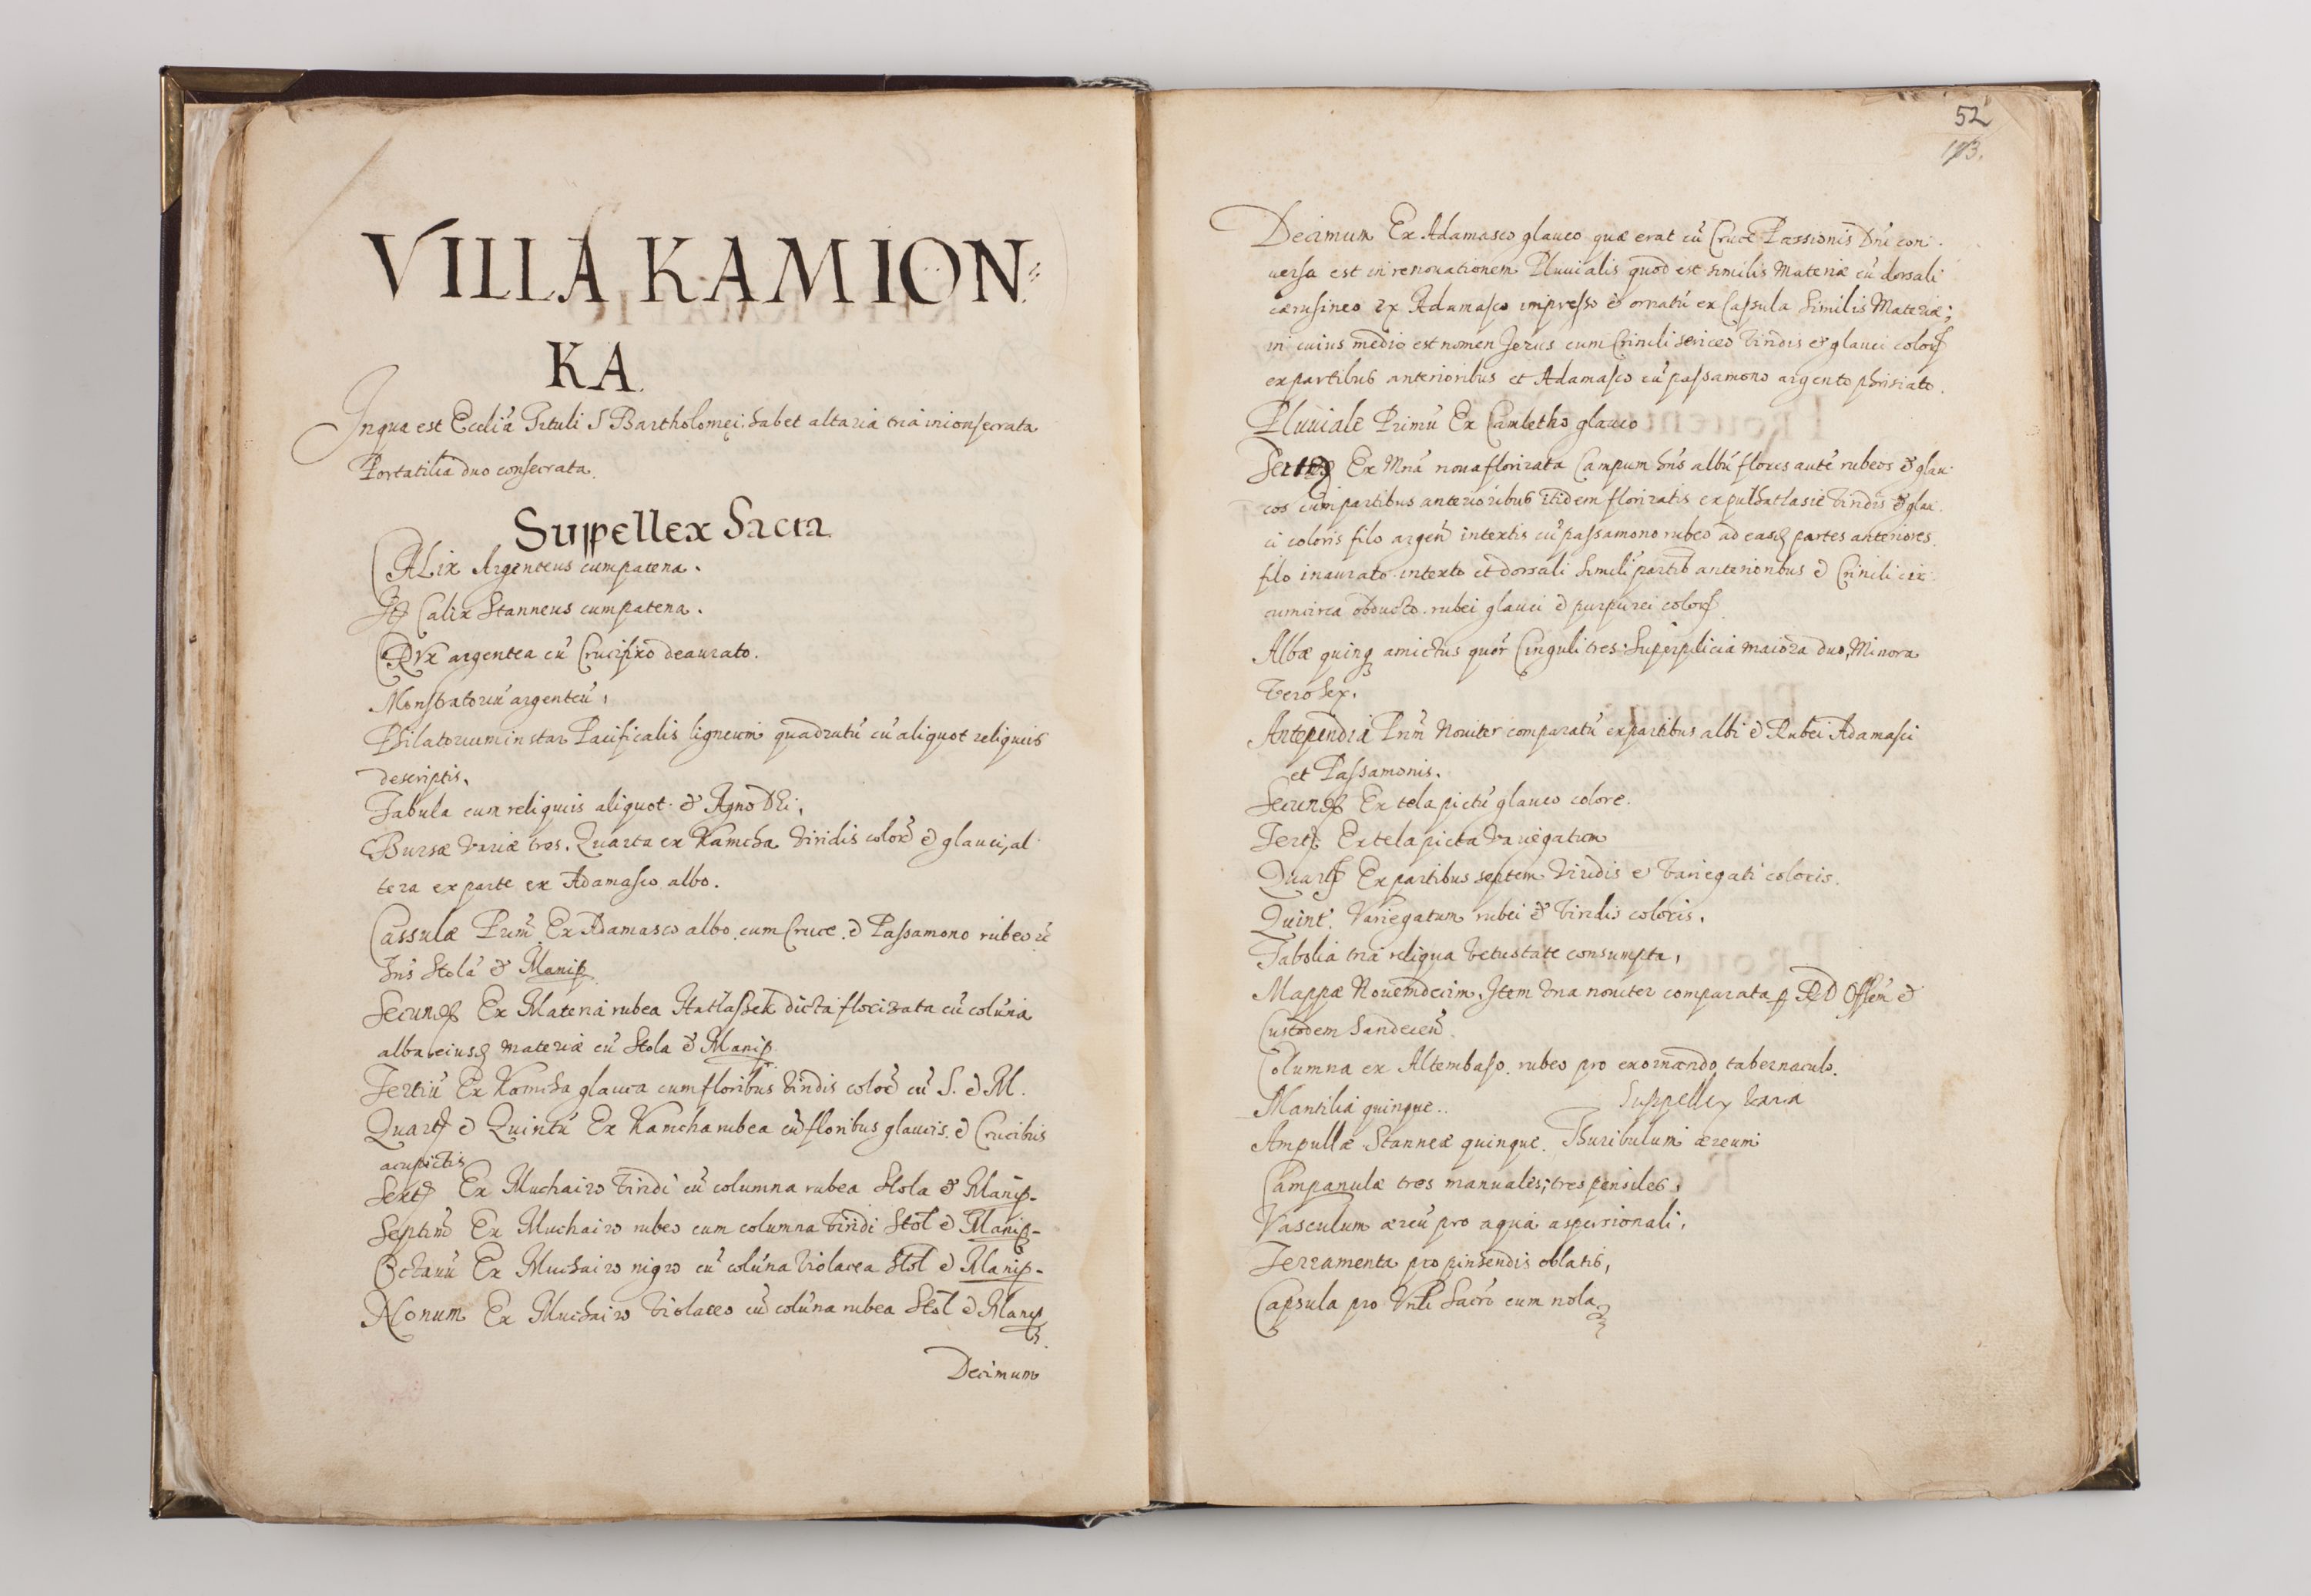 VILLA KAMION:
KA.
In qua est Eccliã Tituli S Bartholomęi. habet altaria tria inconsecrata
Portatilia duo consecrata.
Suppellex Sacra
CALix Argenteus cum patena.
Calix Stanneus cum patena.
CRVx argentea cũ Crucifixo deaurato.
Monstratoriũ argenteũ,
Philatorium instar Pacificalis ligneum quadratũ cũ aliquot reliquiis
descriptis.
Tabula cum reliquiis aliquot & Agno DEi,
Bursæ variæ tres. Quarta ex Kamcha viridis colorẽ & glauci, al
tera ex parte ex Adamasco albo.
Cassulæ Primũ Ex Adamasco albo cum Cruce & Passamono rubeo
hñs Stolã & Manip
Secund Ex Materia rubea Hatłassek dicta florizata cũ colũna
alba eiusq materiæ cũ Stola & Manip
Tertiũ Ex Kamcha glauca cum floribus viridis colorẽ cũ S. & M.
Quart & Quintũ Ex Kamcha rubea cũ floribus glaucis & Crucibus
acupictis
Sext Ex Muchairo viridi cũ columna rubea Stola & Manip-
Septim Ex Muchairo rubeo cum columna viridi Stol & Manip-
Octauũ Ex Muchairo nigro cũ colũna violacea Stol & Manip-
Nonum Ex Muchairo violaceo cũ colũna rubea Stol & Manip
Decimum
52
113.
Decimum Ex Adamasco glauco quæ erat cũ Cruce Passionis Dñi con
uersa est in renouationem Pluuialis quod est similis Materiæ cũ dorsali
cærusineo ex Adamasco impresso & ornatũ ex Capsula Similis Materiæ;
in cuius medio est nomen Jezus cum Crinili sericeo viridis & glauci color
ex partibus anterioribus et Adamasco cũ passamono argento phrisiato.
Pluuiale Primũ Ex Camletho glauco
Ex Mña noua florizata Campum hñs albũ flores autẽ rubeos & glau
cos cum partibus anterioribus itidem florizatis ex pułhatłasie viridis & glau
ci coloris filo argen intextis cũ passamono rubeo ad easq partes anteriores
filo inaurato intexto et dorsali simili partib anterioribus & Crinili cir
cumcirca obducto rubei glauci & purpurei color
Albæ quinq amictus quor Cinguli tres. Superpilicia maiora duo, Minora
vero sex.
Antependia Prim Nouiter comparatũ ex partibus albi & Rubei Adamasci
et Passamonis.
Secund Ex tela pictũ glauco colore.
Tert Ex tela picta variegatum
Quart Ex partibus septem viridis & variegati coloris.
Quint. Variegatum rubei & viridis coloris.
Tabolia tria reliqua vetustate consumpta,
Mappæ Nouemdecim. Item vna nouiter comparata p RD Offlem &
Custodem Sandecen
Columna ex Altembaso rubeo pro exornando tabernaculo.
Mantilia quinque.. Suppellex varia
Ampullæ Stanneæ quinque. Thuribulum æreum
Campanulæ tres manuales; tres pensiles,
Vasculum æreũ pro aqua aspersionali,
Ferramenta pro pinsendis oblatis,
Capsula pro Vnli Sacro cum nola